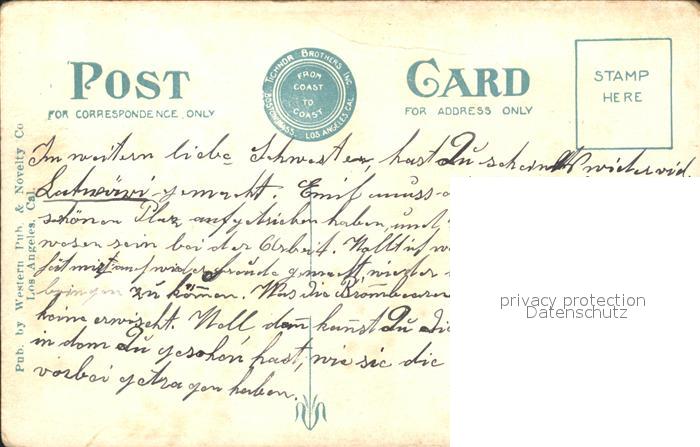 POST CARD
TICHNOR BROTHERS INC.
BOSTON, MASS. LOS ANGELES CAL.
FROM
COAST
TO
COAST
FOR CORRESPONDENCE ONLY
FOR ADDRESS ONLY
STAMP
HERE
Pub. by Western Pub. & Novelty Co
Los Angeles, Cal.
Im weitern liebe Schwester, hast Du scheints wieder viel
Latwäri gemacht. Emil muss
schönen Plaz aufgetrieben haben, und
wesen sein bei der Arbeit.
wieder Freude gemacht,
bringen zu können. Was die Brombeeren
keine erwischt. Well dann kanst Du die
in dem Du gesehen hast, wie sie die
vorbei getragen haben.
privacy protection
Datenschutz